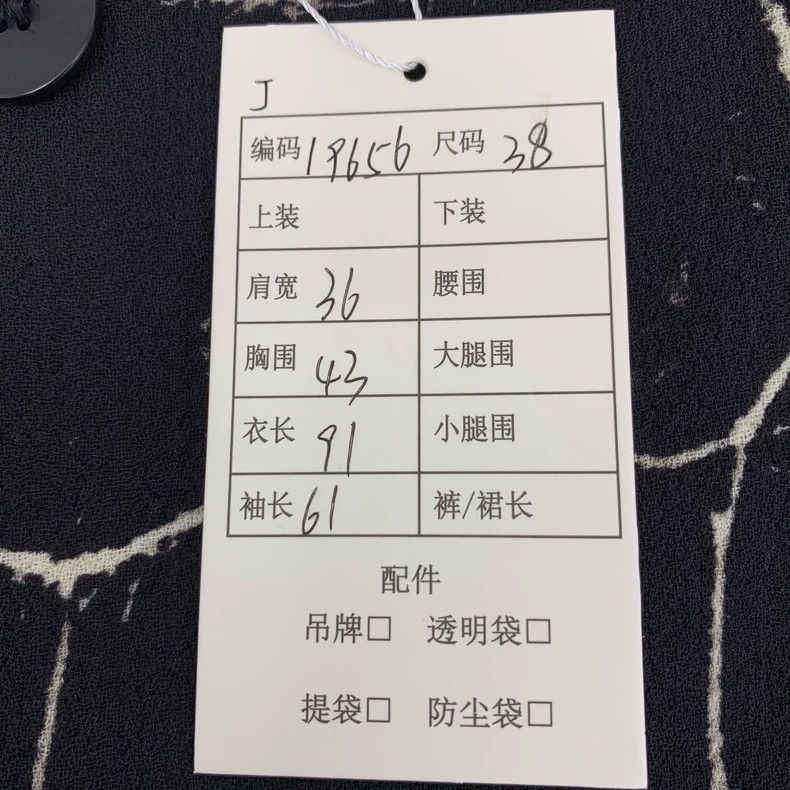 J
编码 19656 尺码 38
上装 下装
肩宽 36 腰围
胸围 43 大腿围
衣长 91 小腿围
袖长 61 裤/裙长
配件
吊牌□ 透明袋□
提袋□ 防尘袋□